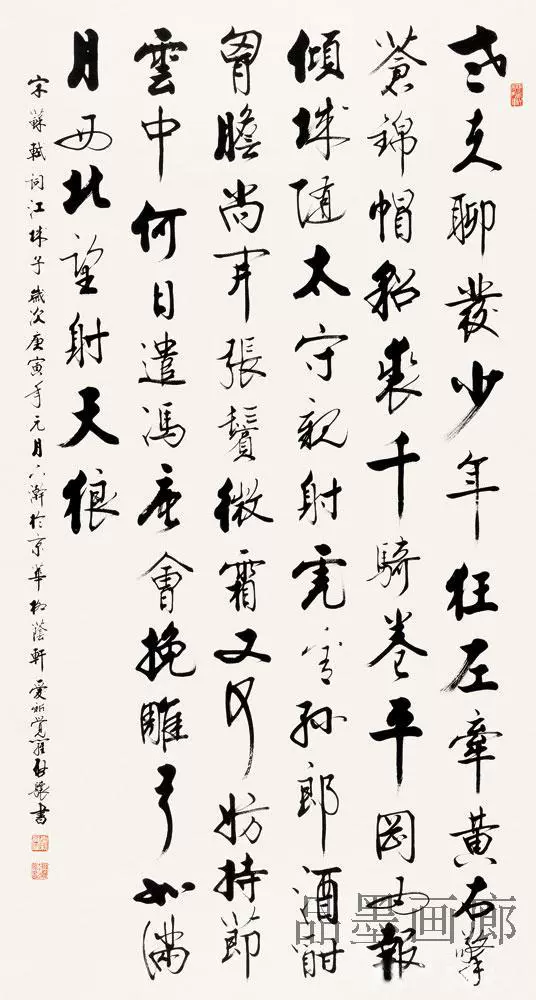 老夫聊發少年狂左牽黃右擎
蒼錦帽貂裘千騎卷平岡為報
傾城隨太守親射虎看孫郎酒酣
胸膽尚開張鬢微霜又何妨持節
雲中何日遣馮唐會挽雕弓如滿
月西北望射天狼
宋蘇軾词江城子歲次庚寅年元月六瀚於京華柳蔭軒愛新覺羅書
品墨画廊